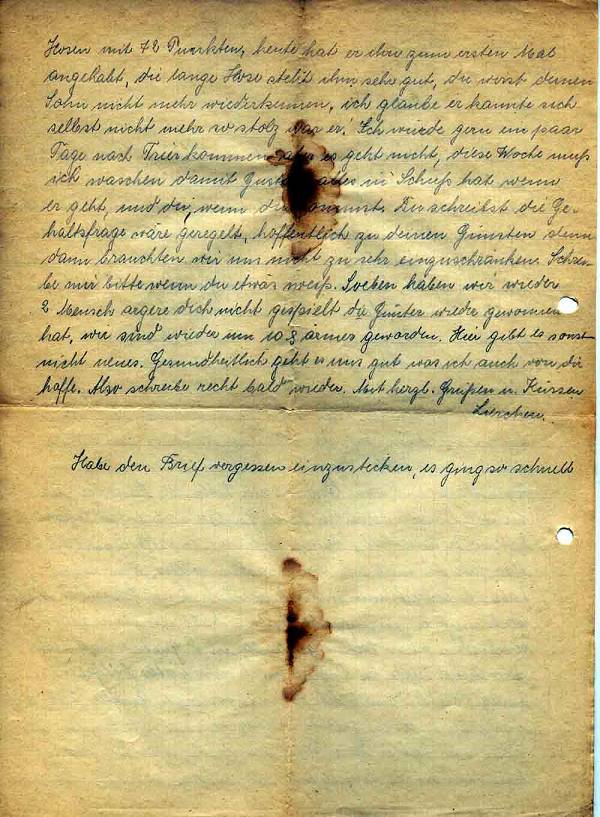 Hosen mit 72 Punkten, heute hat er ihn zum ersten Mal
angehabt, die lange Hose steht ihm sehr gut, du wirst deinen
Sohn nicht mehr wiederkennen, ich glaube er kannte sich
selbst nicht mehr so stolz war er. Ich würde gern ein paar
Tage nach Trier kommen aber es geht nicht, diese Woche muß
ich waschen damit alles in Schuß hat wenn
er geht, und du, wenn du kommst. Du schreibst die Ge-
haltsfrage wäre geregelt, hoffentlich zu deinen Gunsten denn
dann brauchten wir uns nicht zu sehr einzuschränken. Schrei-
be mir bitte wenn du etwas weiß. Soeben haben wir wieder
2 Mensch argere dich nicht gespielt die Günter wieder gewonnen
hat, wir sind wieder um 10 ₰ armes geworden. Hier gibt es sonst
nicht neues. Gesundheitlich geht es uns gut was ich auch von dir
hoffe. Also schreibe recht bald wieder. Mit herzl. Grüßen u. Küssen
Lierchen.
Habe den Brief vergessen einzustecken, es ging so schnell